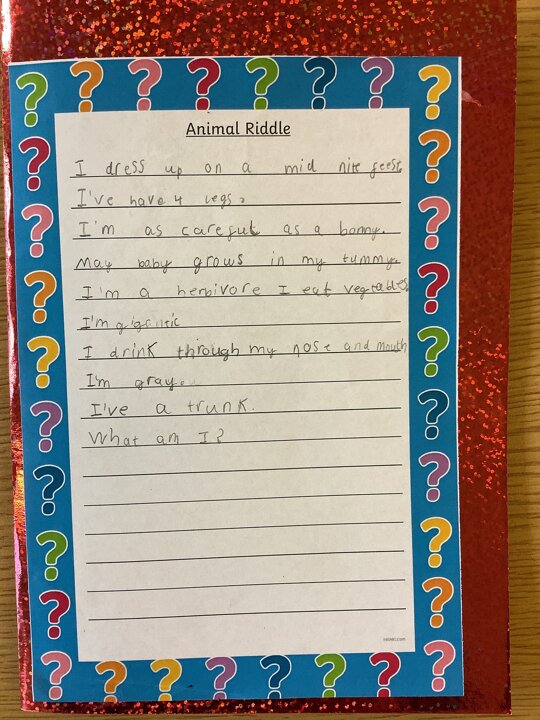 Animal Riddle
I dress up on a mid nite feest
I've have 4 legs.
I'm as carefut as a bonny.
May baby grows in my tummy.
I'm a herbivore I eat vegtables
I'm gigantic
I drink through my nose and mouth
I'm gray.
I've a trunk.
What am I?